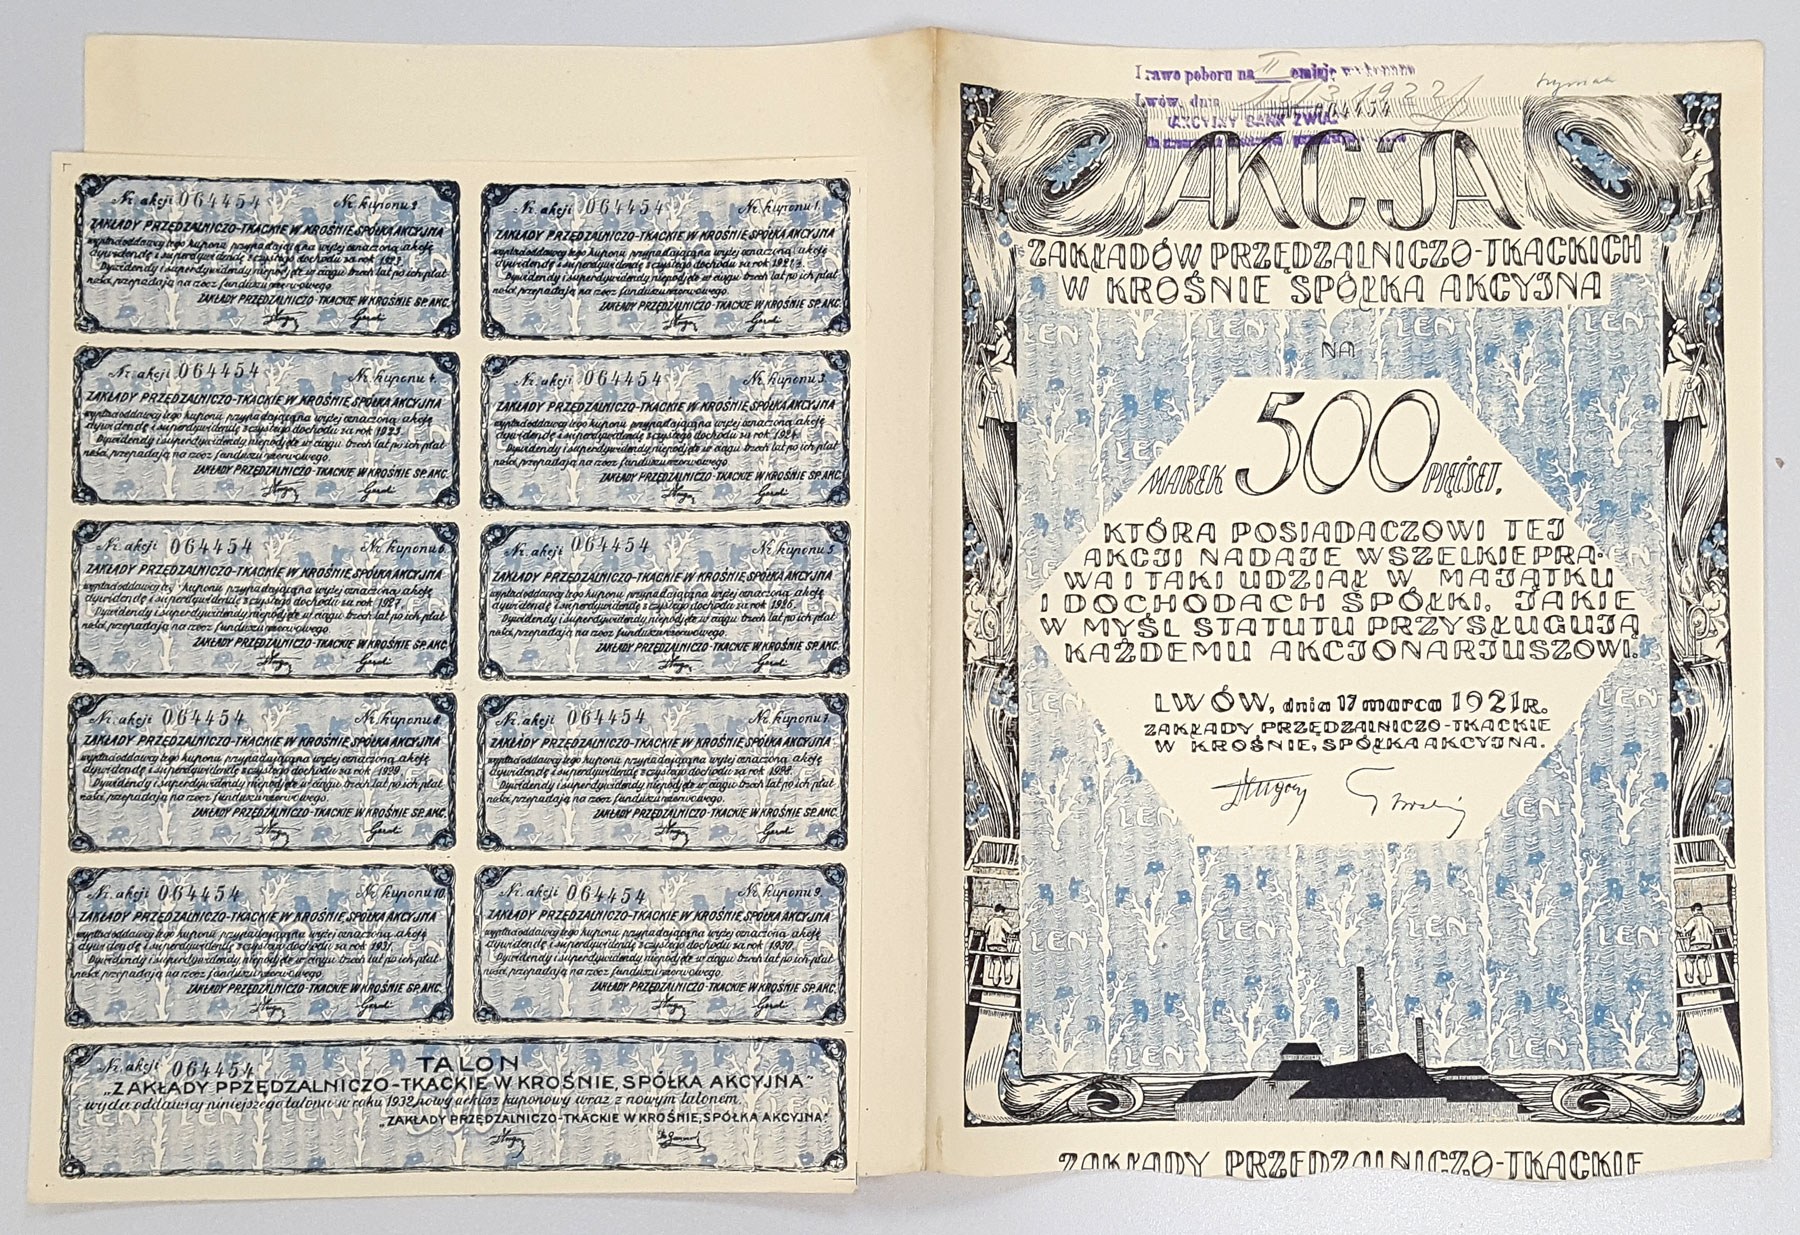 Nr. akcji 064454 Nr. kuponu 2.
ZAKŁADY PRZĘDZALNICZO-TKACKIE W KROŚNIE, SPÓŁKA AKCYJNA
wypłaci oddawcy tego kuponu przypadającą na wyżej oznaczoną akcję
dywidendę i superdywidendę z czystego dochodu za rok 1923.
Dywidendy i superdywidendy niepodjęte w ciągu trzech lat po ich płat-
ności, przepadają na rzecz funduszu rezerwowego.
ZAKŁADY PRZĘDZALNICZO-TKACKIE W KROŚNIE SP. AKC.
Nr. akcji 064454 Nr. kuponu 1.
ZAKŁADY PRZĘDZALNICZO-TKACKIE W KROŚNIE, SPÓŁKA AKCYJNA
wypłaci oddawcy tego kuponu przypadającą na wyżej oznaczoną akcję
dywidendę i superdywidendę z czystego dochodu za rok
Dywidendy i superdywidendy niepodjęte w ciągu trzech lat po ich płat-
ności, przepadają na rzecz funduszu rezerwowego.
ZAKŁADY PRZĘDZALNICZO-TKACKIE W KROŚNIE SP. AKC.
Nr. akcji 064454 Nr. kuponu 4.
ZAKŁADY PRZĘDZALNICZO-TKACKIE W KROŚNIE, SPÓŁKA AKCYJNA
wypłaci oddawcy tego kuponu przypadającą na wyżej oznaczoną akcję
dywidendę i superdywidendę z czystego dochodu za rok 1925.
Dywidendy i superdywidendy niepodjęte w ciągu trzech lat po ich płat-
ności, przepadają na rzecz funduszu rezerwowego.
ZAKŁADY PRZĘDZALNICZO-TKACKIE W KROŚNIE SP. AKC.
Nr. akcji 064454 Nr. kuponu 3.
ZAKŁADY PRZĘDZALNICZO-TKACKIE W KROŚNIE, SPÓŁKA AKCYJNA
wypłaci oddawcy tego kuponu przypadającą na wyżej oznaczoną akcję
dywidendę i superdywidendę z czystego dochodu za rok 1924.
Dywidendy i superdywidendy niepodjęte w ciągu trzech lat po ich płat-
ności, przepadają na rzecz funduszu rezerwowego.
ZAKŁADY PRZĘDZALNICZO-TKACKIE W KROŚNIE SP. AKC.
Nr. akcji 064454 Nr. kuponu 6.
ZAKŁADY PRZĘDZALNICZO-TKACKIE W KROŚNIE, SPÓŁKA AKCYJNA
wypłaci oddawcy tego kuponu przypadającą na wyżej oznaczoną akcję
dywidendę i superdywidendę z czystego dochodu za rok 1927.
Dywidendy i superdywidendy niepodjęte w ciągu trzech lat po ich płat-
ności, przepadają na rzecz funduszu rezerwowego.
ZAKŁADY PRZĘDZALNICZO-TKACKIE W KROŚNIE SP. AKC.
Nr. akcji 064454 Nr. kuponu 5.
ZAKŁADY PRZĘDZALNICZO-TKACKIE W KROŚNIE, SPÓŁKA AKCYJNA
wypłaci oddawcy tego kuponu przypadającą na wyżej oznaczoną akcję
dywidendę i superdywidendę z czystego dochodu za rok 1926.
Dywidendy i superdywidendy niepodjęte w ciągu trzech lat po ich płat-
ności, przepadają na rzecz funduszu rezerwowego.
ZAKŁADY PRZĘDZALNICZO-TKACKIE W KROŚNIE SP. AKC.
Nr. akcji 064454 Nr. kuponu 8.
ZAKŁADY PRZĘDZALNICZO-TKACKIE W KROŚNIE, SPÓŁKA AKCYJNA
wypłaci oddawcy tego kuponu przypadającą na wyżej oznaczoną akcję
dywidendę i superdywidendę z czystego dochodu za rok 1929.
Dywidendy i superdywidendy niepodjęte w ciągu trzech lat po ich płat-
ności, przepadają na rzecz funduszu rezerwowego.
ZAKŁADY PRZĘDZALNICZO-TKACKIE W KROŚNIE SP. AKC.
Nr. akcji 064454 Nr. kuponu 7.
ZAKŁADY PRZĘDZALNICZO-TKACKIE W KROŚNIE, SPÓŁKA AKCYJNA
wypłaci oddawcy tego kuponu przypadającą na wyżej oznaczoną akcję
dywidendę i superdywidendę z czystego dochodu za rok 1928.
Dywidendy i superdywidendy niepodjęte w ciągu trzech lat po ich płat-
ności, przepadają na rzecz funduszu rezerwowego.
ZAKŁADY PRZĘDZALNICZO-TKACKIE W KROŚNIE SP. AKC.
Nr. akcji 064454 Nr. kuponu 10.
ZAKŁADY PRZĘDZALNICZO-TKACKIE W KROŚNIE, SPÓŁKA AKCYJNA
wypłaci oddawcy tego kuponu przypadającą na wyżej oznaczoną akcję
dywidendę i superdywidendę z czystego dochodu za rok 1931.
Dywidendy i superdywidendy niepodjęte w ciągu trzech lat po ich płat-
ności, przepadają na rzecz funduszu rezerwowego.
ZAKŁADY PRZĘDZALNICZO-TKACKIE W KROŚNIE SP. AKC.
Nr. akcji 064454 Nr. kuponu 9.
ZAKŁADY PRZĘDZALNICZO-TKACKIE W KROŚNIE, SPÓŁKA AKCYJNA
wypłaci oddawcy tego kuponu przypadającą na wyżej oznaczoną akcję
dywidendę i superdywidendę z czystego dochodu za rok 1930.
Dywidendy i superdywidendy niepodjęte w ciągu trzech lat po ich płat-
ności, przepadają na rzecz funduszu rezerwowego.
ZAKŁADY PRZĘDZALNICZO-TKACKIE W KROŚNIE SP. AKC.
Nr. akcji 064454 TALON
„ZAKŁADY PRZĘDZALNICZO-TKACKIE W KROŚNIE, SPÓŁKA AKCYJNA"
wyda oddawcy niniejszego talonu w roku 1932 nowy arkusz kuponowy wraz z nowym talonem.
„ZAKŁADY PRZĘDZALNICZO-TKACKIE W KROŚNIE, SPÓŁKA AKCYJNA."
Prawo poboru na II emisję wykonano
Lwów, dnia 15/3 1922
064454
AKCYJNY BANK ZWIĄ
AKCJA
ZAKŁADÓW PRZĘDZALNICZO-TKACKICH
W KROŚNIE SPÓŁKA AKCYJNA
NA
MAREK 500 PIĘĆSET,
KTÓRA POSIADACZOWI TEJ
AKCJI NADAJE WSZELKIE PRA-
WA I TAKI UDZIAŁ W MAJĄTKU
I DOCHODACH SPÓŁKI, JAKIE
W MYŚL STATUTU PRZYSŁUGUJĄ
KAŻDEMU AKCJONARJUSZOWI.
LWÓW, dnia 17 marca 1921 R.
ZAKŁADY PRZĘDZALNICZO-TKACKIE
W KROŚNIE, SPÓŁKA AKCYJNA.
LEN LEN LEN LEN
ZAKŁADY PRZĘDZALNICZO-TKACKIE